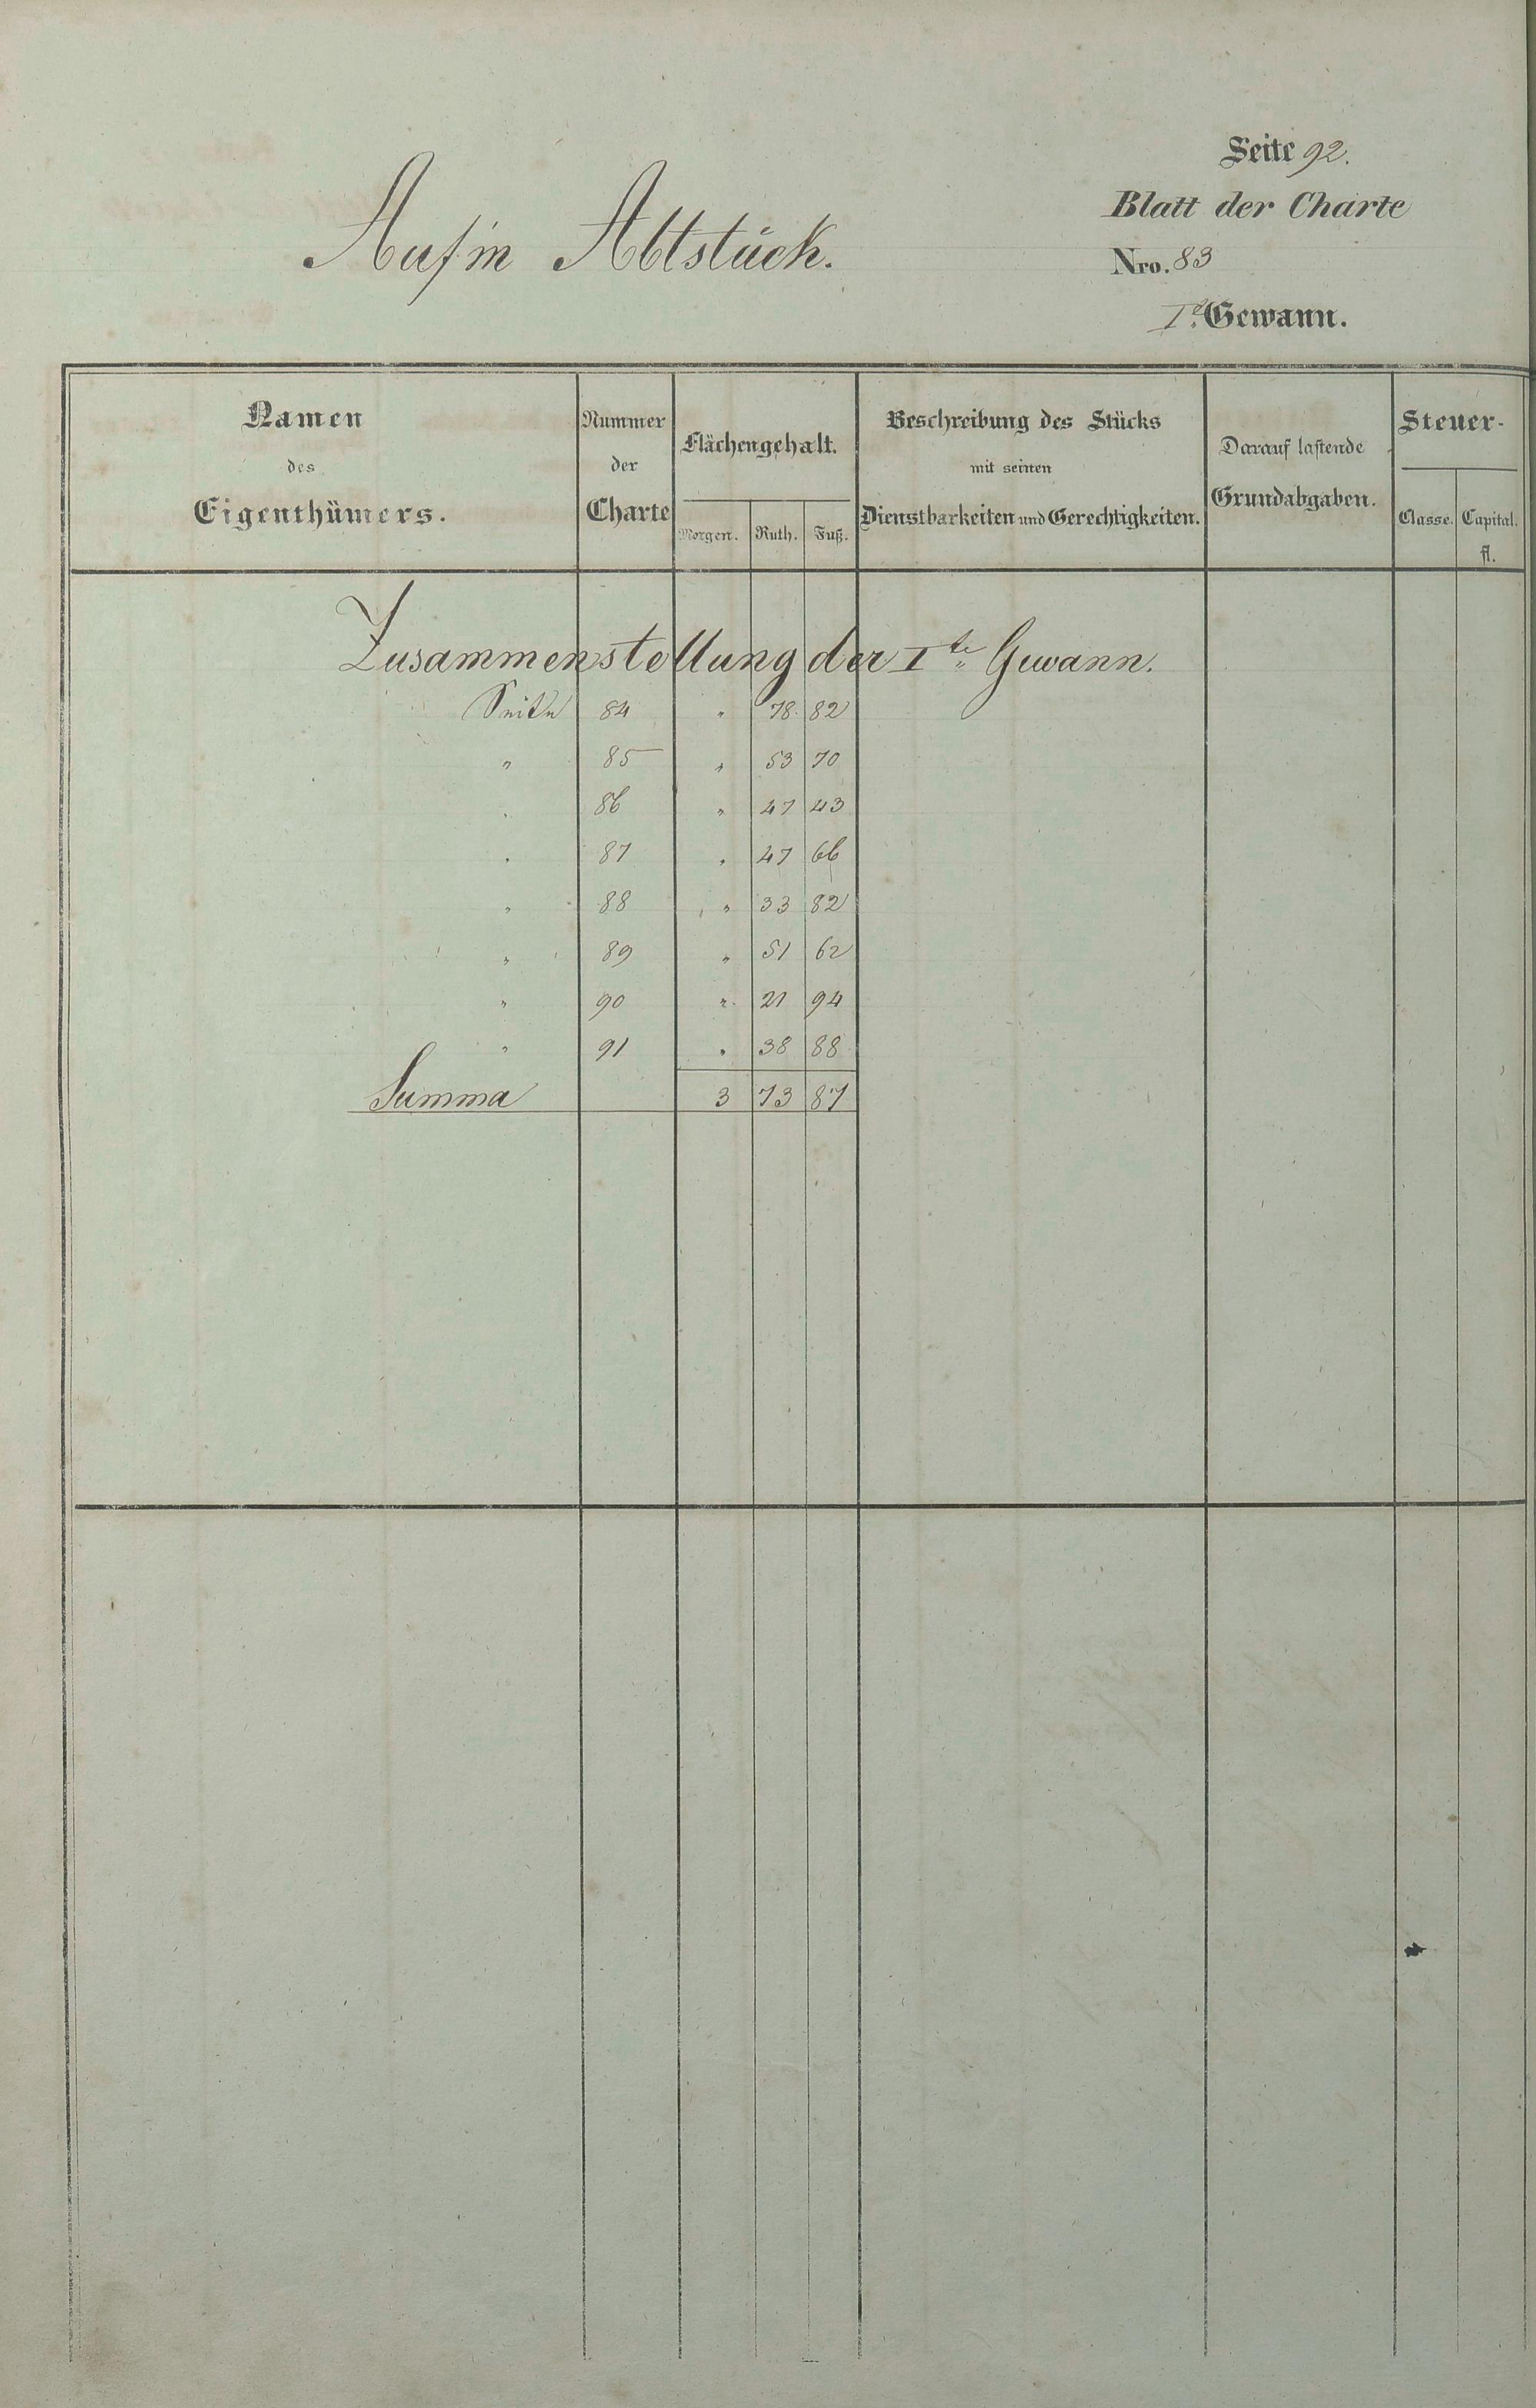 Seite 92.
Auf'm Abtstück.
Blatt der Charte
Nro. 83
Iᵗᵉ Gewann.
Namen des Eigenthümers.
Nummer der Charte
Flächengehalt.
Morgen. Ruth. Fuß.
Beschreibung des Stücks mit seinen Dienstbarkeiten und Gerechtigkeiten.
Darauf lastende Grundabgaben.
Steuer-
Classe. Capital. fl.
Zusammenstellung der Iᵗᵉ Gewann.
Seite 84 " 78 82
" 85 " 53 70
" 86 " 47 43
" 87 " 47 66
" 88 " 33 82
" 89 " 51 62
" 90 " 21 94
" 91 " 38 88
Summa 3 73 87